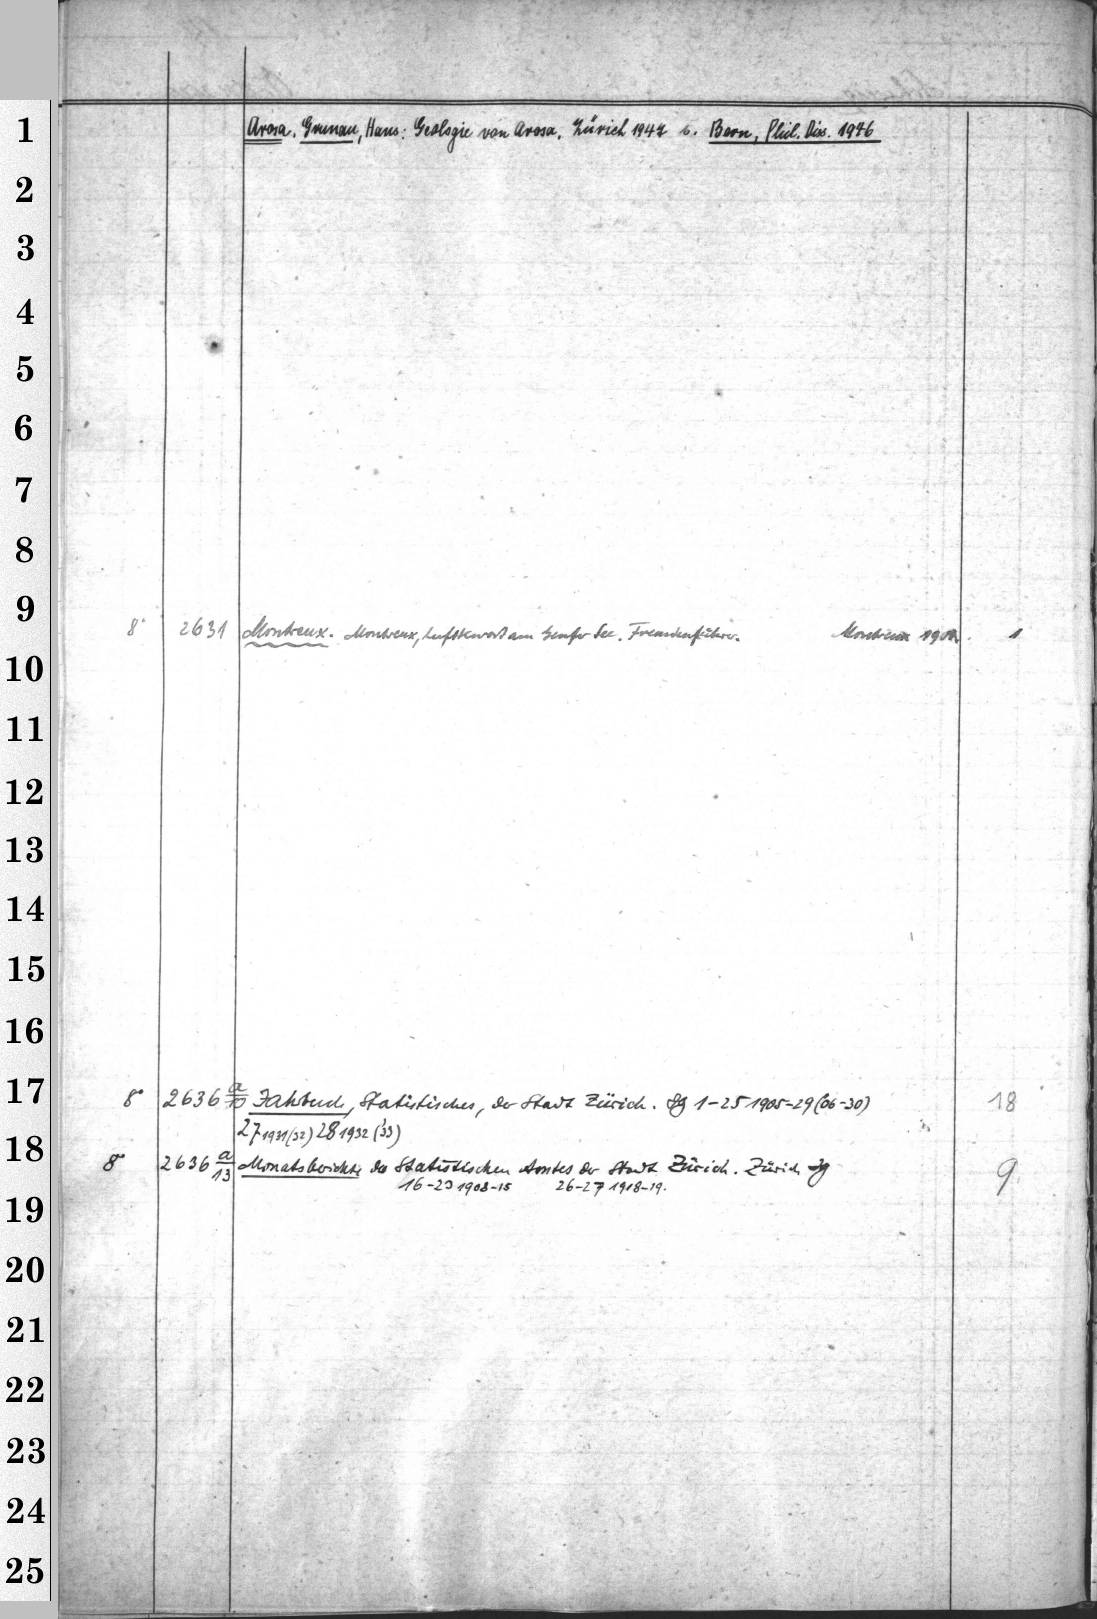 1
Arosa. Grunau, Hans: Geologie von Arosa. Zürich 1947 s. Bern, Phil. Diss. 1946
2
3
4
5
6
7
8
9
8° 2631 Montreux. Montreux, Luftkurort am Genfer See. Fremdenführer. Montreux 1
10
11
12
13
14
15
16
17
8° 2636 a/10 Jahrbuch, Statistisches, der Stadt Zürich. Jg 1-25 1905-29 (06-30) 18
27 1931(32) 28 1932 (33)
18
8° 2636 a/13 Monatsberichte des Statistischen Amtes der Stadt Zürich. Zürich Jg 9
16-23 1908-15 26-27 1918-19.
19
20
21
22
23
24
25